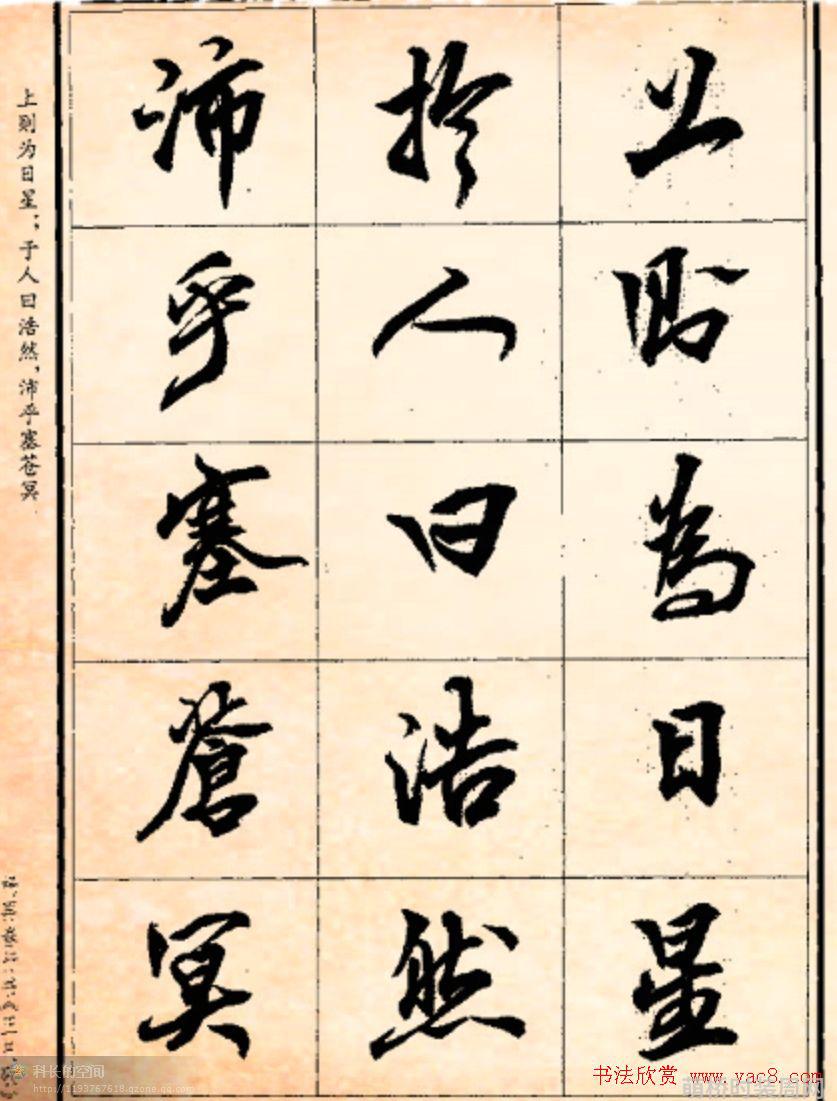 上則為日星
於人曰浩然
沛乎塞蒼冥
上则为日星；于人曰浩然，沛乎塞苍冥
科长的空间
http://1193767618.qzone.qq.com
书法欣赏 www.yac8.com